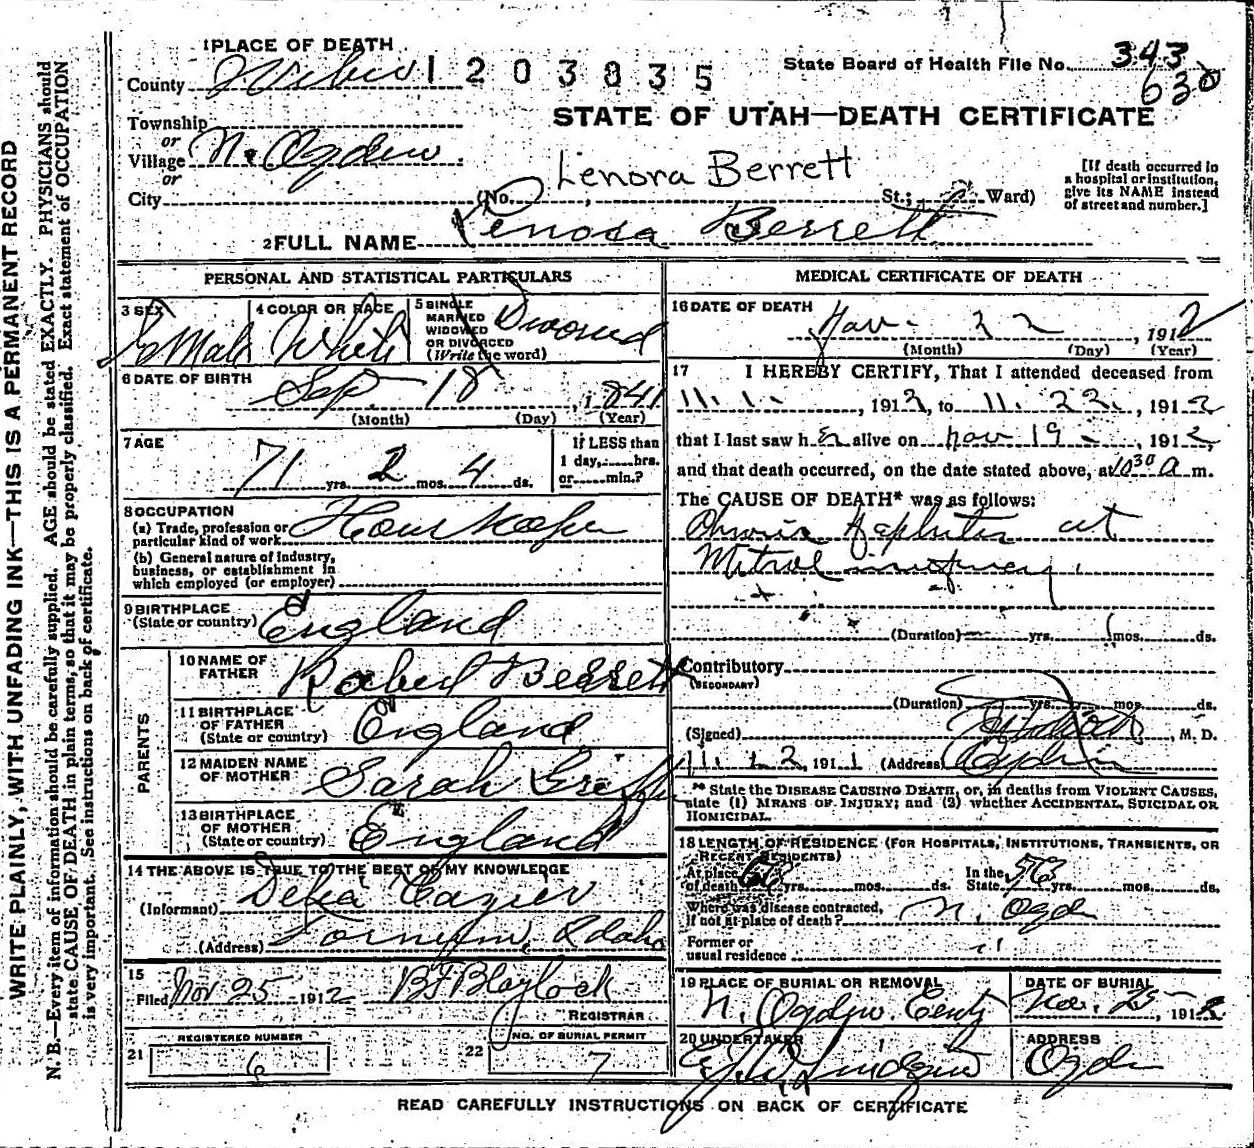 WRITE PLAINLY, WITH UNFADING INK—THIS IS A PERMANENT RECORD
N. B.—Every item of information should be carefully supplied. AGE should be stated EXACTLY. PHYSICIANS should
state CAUSE OF DEATH in plain terms, so that it may be properly classified. Exact statement of OCCUPATION
is very important. See instructions on back of certificate.
1 PLACE OF DEATH
County Weber 1203835
State Board of Health File No. 343
630
STATE OF UTAH—DEATH CERTIFICATE
Township
or
Village N. Ogden
or
City
Lenora Berrett
(No. , St.; Ward)
[If death occurred in
a hospital or institution,
give its NAME instead
of street and number.]
2 FULL NAME Lenora Berrett
PERSONAL AND STATISTICAL PARTICULARS
3 SEX
4 COLOR OR RACE White
5 SINGLE
MARRIED
WIDOWED
OR DIVORCED
(Write the word)
Divorced
6 DATE OF BIRTH
Sep 18, 1841
(Month) (Day) (Year)
7 AGE
71 yrs. 2 mos. 4 ds.
If LESS than
1 day,......hrs.
or......min.?
8 OCCUPATION
(a) Trade, profession or
particular kind of work
(b) General nature of industry,
business, or establishment in
which employed (or employer)
9 BIRTHPLACE
(State or country) England
PARENTS
10 NAME OF
FATHER Robert Berrett
11 BIRTHPLACE
OF FATHER
(State or country) England
12 MAIDEN NAME
OF MOTHER Sarah
13 BIRTHPLACE
OF MOTHER
(State or country) England
14 THE ABOVE IS TRUE TO THE BEST OF MY KNOWLEDGE
(Informant) Delia Cazier
(Address) Idaho
15
Filed Nov 25 1912 BF Blaylock
REGISTRAR
REGISTERED NUMBER
21 6
NO. OF BURIAL PERMIT
22 7
MEDICAL CERTIFICATE OF DEATH
16 DATE OF DEATH
Nov. 22, 1912
(Month) (Day) (Year)
17 I HEREBY CERTIFY, That I attended deceased from
11. 1., 1912, to 11. 22., 1912
that I last saw h er alive on Nov 19, 1912,
and that death occurred, on the date stated above, at 10 30 a m.
The CAUSE OF DEATH* was as follows:
Mitral
(Duration) yrs. 1 mos. ds.
Contributory
(SECONDARY)
(Duration) yrs. mos. ds.
(Signed) , M. D.
191 (Address) Ogden
* State the DISEASE CAUSING DEATH, or, in deaths from VIOLENT CAUSES,
state (1) MEANS OF INJURY; and (2) whether ACCIDENTAL, SUICIDAL OR
HOMICIDAL.
18 LENGTH OF RESIDENCE (FOR HOSPITALS, INSTITUTIONS, TRANSIENTS, OR
RECENT RESIDENTS)
At place
of death yrs. mos. ds.
In the
State yrs. mos. ds.
Where was disease contracted,
if not at place of death? N. Ogden
Former or
usual residence "
19 PLACE OF BURIAL OR REMOVAL
N. Ogden
DATE OF BURIAL
Nov. 25 1912
20 UNDERTAKER
ADDRESS
Ogden
READ CAREFULLY INSTRUCTIONS ON BACK OF CERTIFICATE